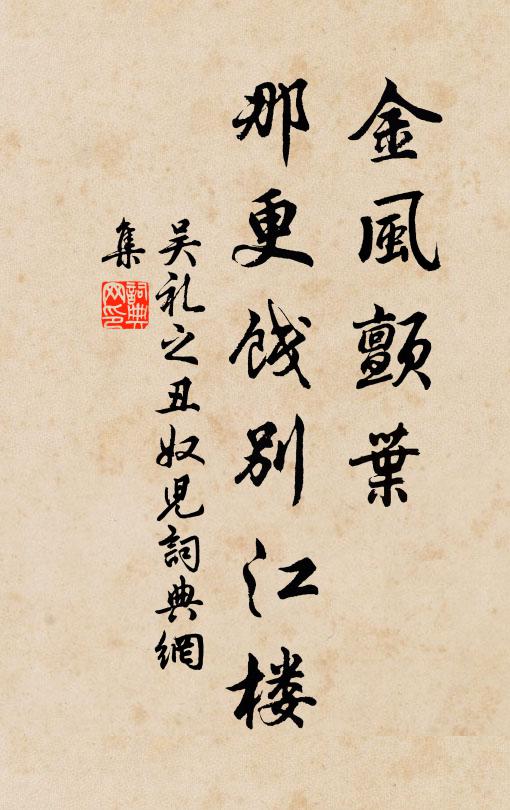 金風顫葉
那更餞別江楼
吴礼之丑奴児詞典網
集
詞典
网印